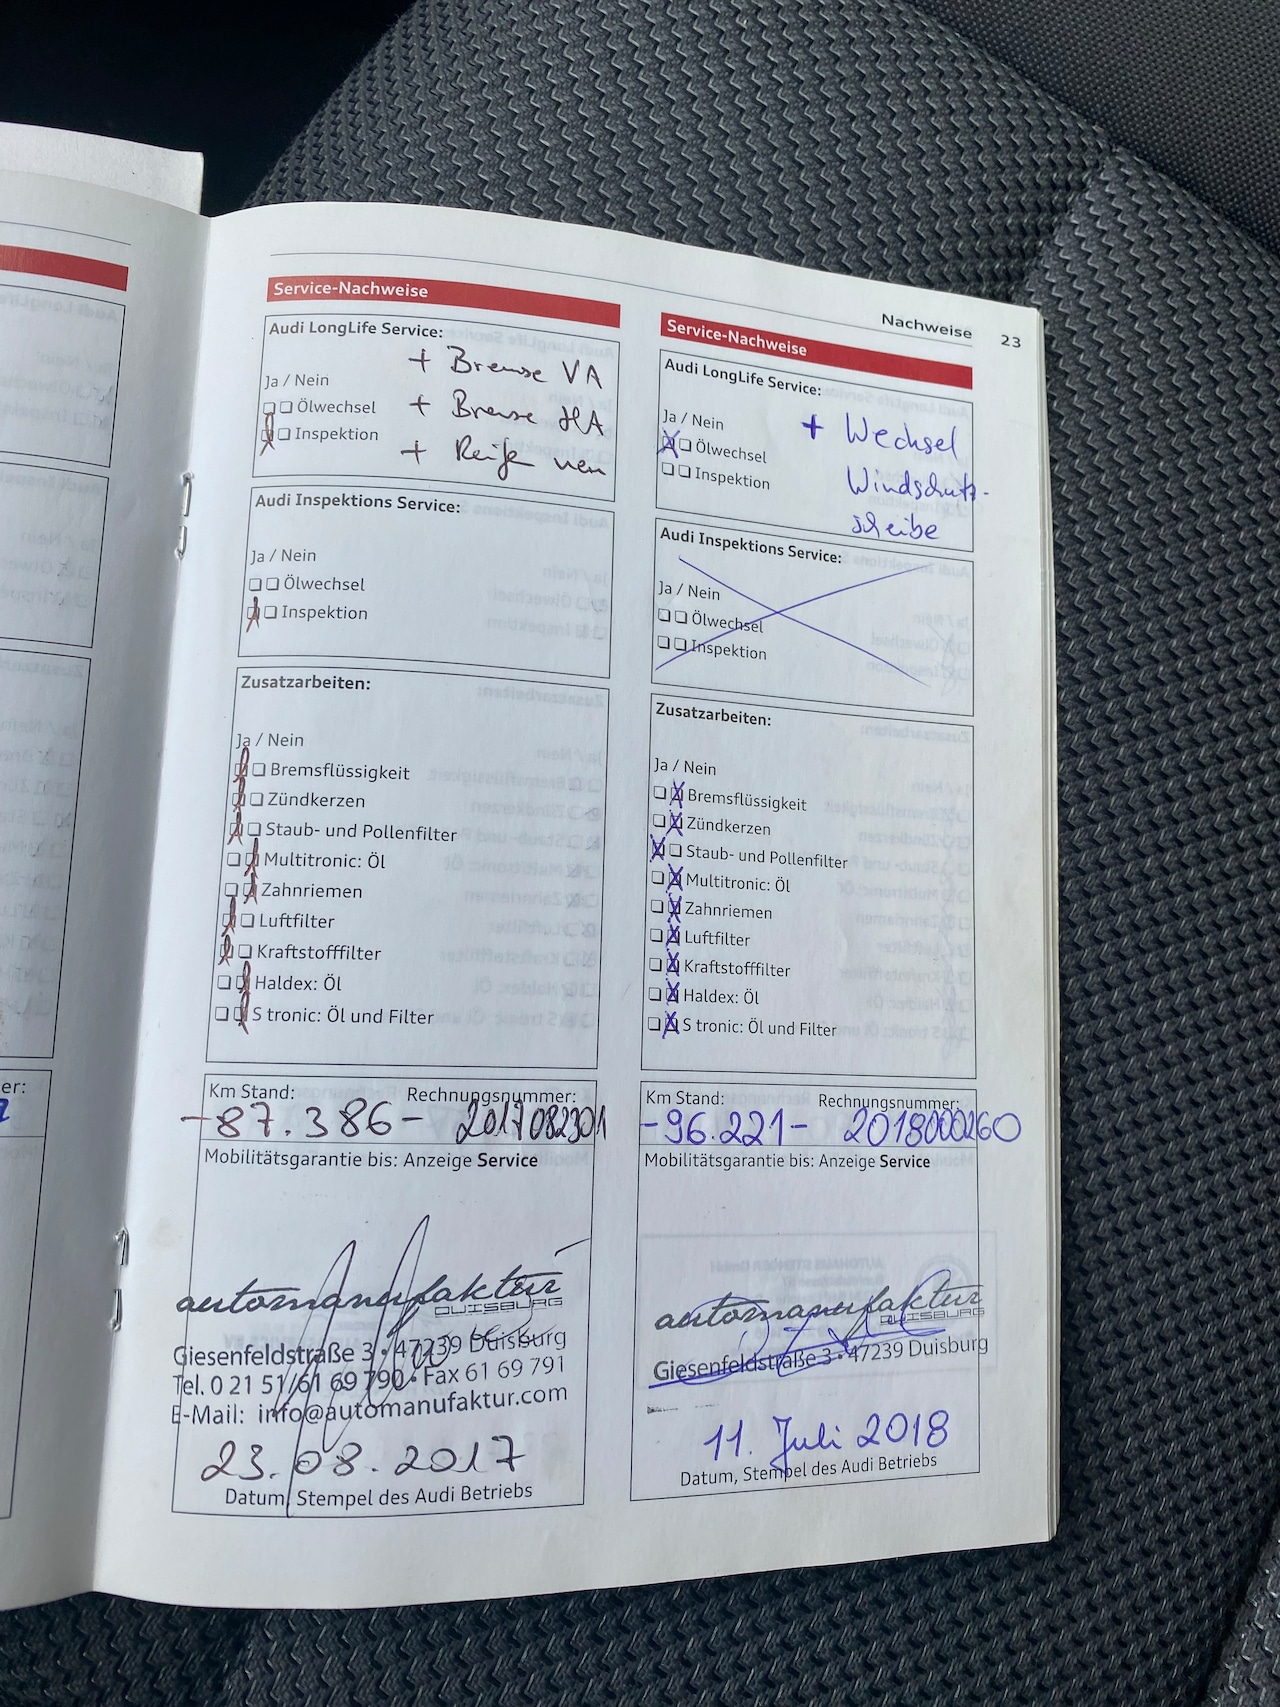 Nachweise 23
Service-Nachweise
Audi LongLife Service:
+ Bremse VA
Ja / Nein
Ölwechsel
+ Bremse HA
Inspektion
+ Reifen neu
Audi Inspektions Service:
Ja / Nein
Ölwechsel
Inspektion
Zusatzarbeiten:
Ja / Nein
Bremsflüssigkeit
Zündkerzen
Staub- und Pollenfilter
Multitronic: Öl
Zahnriemen
Luftfilter
Kraftstofffilter
Haldex: Öl
S tronic: Öl und Filter
Km Stand: Rechnungsnummer:
-87.386- 2017082301
Mobilitätsgarantie bis: Anzeige Service
automanufaktur
DUISBURG
Giesenfeldstraße 3 • 47239 Duisburg
Tel. 0 21 51/61 69 790 • Fax 61 69 791
E-Mail: info@automanufaktur.com
23.08.2017
Datum, Stempel des Audi Betriebs
Service-Nachweise
Audi LongLife Service:
Ja / Nein
+ Wechsel
Ölwechsel
Inspektion
Windschutz-
scheibe
Audi Inspektions Service:
Ja / Nein
Ölwechsel
Inspektion
Zusatzarbeiten:
Ja / Nein
Bremsflüssigkeit
Zündkerzen
Staub- und Pollenfilter
Multitronic: Öl
Zahnriemen
Luftfilter
Kraftstofffilter
Haldex: Öl
S tronic: Öl und Filter
Km Stand: Rechnungsnummer:
-96.221- 2018000260
Mobilitätsgarantie bis: Anzeige Service
automanufaktur
DUISBURG
Giesenfeldstraße 3 • 47239 Duisburg
11. Juli 2018
Datum, Stempel des Audi Betriebs
er: